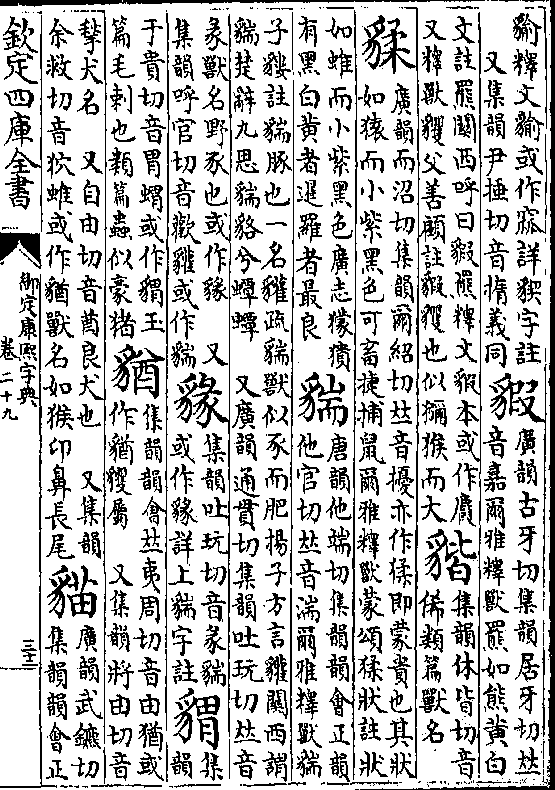 貐釋文貐或作窳詳猰字註
又集韻尹捶切音撱義同
貑
廣韻古牙切集韻居牙切𠀤
音嘉爾雅釋獸羆如熊黃白
文註羆關西呼曰貑熊釋文貑本或作麚
又釋獸貜父善顧註貑貜也似獼猴而大
⿰豸皆
集韻休皆切音
俙類篇獸名
⿰豸柔
廣韻而沼切集韻爾紹切𠀤音擾亦作猱即蒙貴也其狀
如猿而小紫黑色可畜捷捕鼠爾雅釋獸蒙頌猱狀註狀
如蜼而小紫黑色廣志獴㺜
有黑白黃者暹羅者最良
貒
唐韻他端切集韻韻會正韻
他官切𠀤音湍爾雅釋獸貒
子貗註貒豚也一名貛疏貒獸似豕而肥揚子方言貛關西謂
貒楚辭九思貒貉兮蟫蟫 又廣韻通貫切集韻吐玩切𠀤
彖獸名野豕也或作⿰豸彖 又
集韻呼官切音歡貛或作貒
⿰豸彖
集韻吐玩切音彖貒
或作⿰豸彖詳上貒字註
⿰豸胃
集
韻
于貴切音胃蝟或作⿰豸胃玉
篇毛刺也類篇蟲似豪豬
⿰豸酋
集韻韻會𠀤夷周切音由猶或
作⿰豸酋貜屬 又集韻將由切音
揫犬名 又自由切音酋良犬也 又集韻
余救切音狖蜼或作⿰豸酋獸名如猴卬鼻長尾
貓
廣韻武鑣切
集韻韻會正
欽定四庫全書
御定康熙字典
卷二十九
三十二